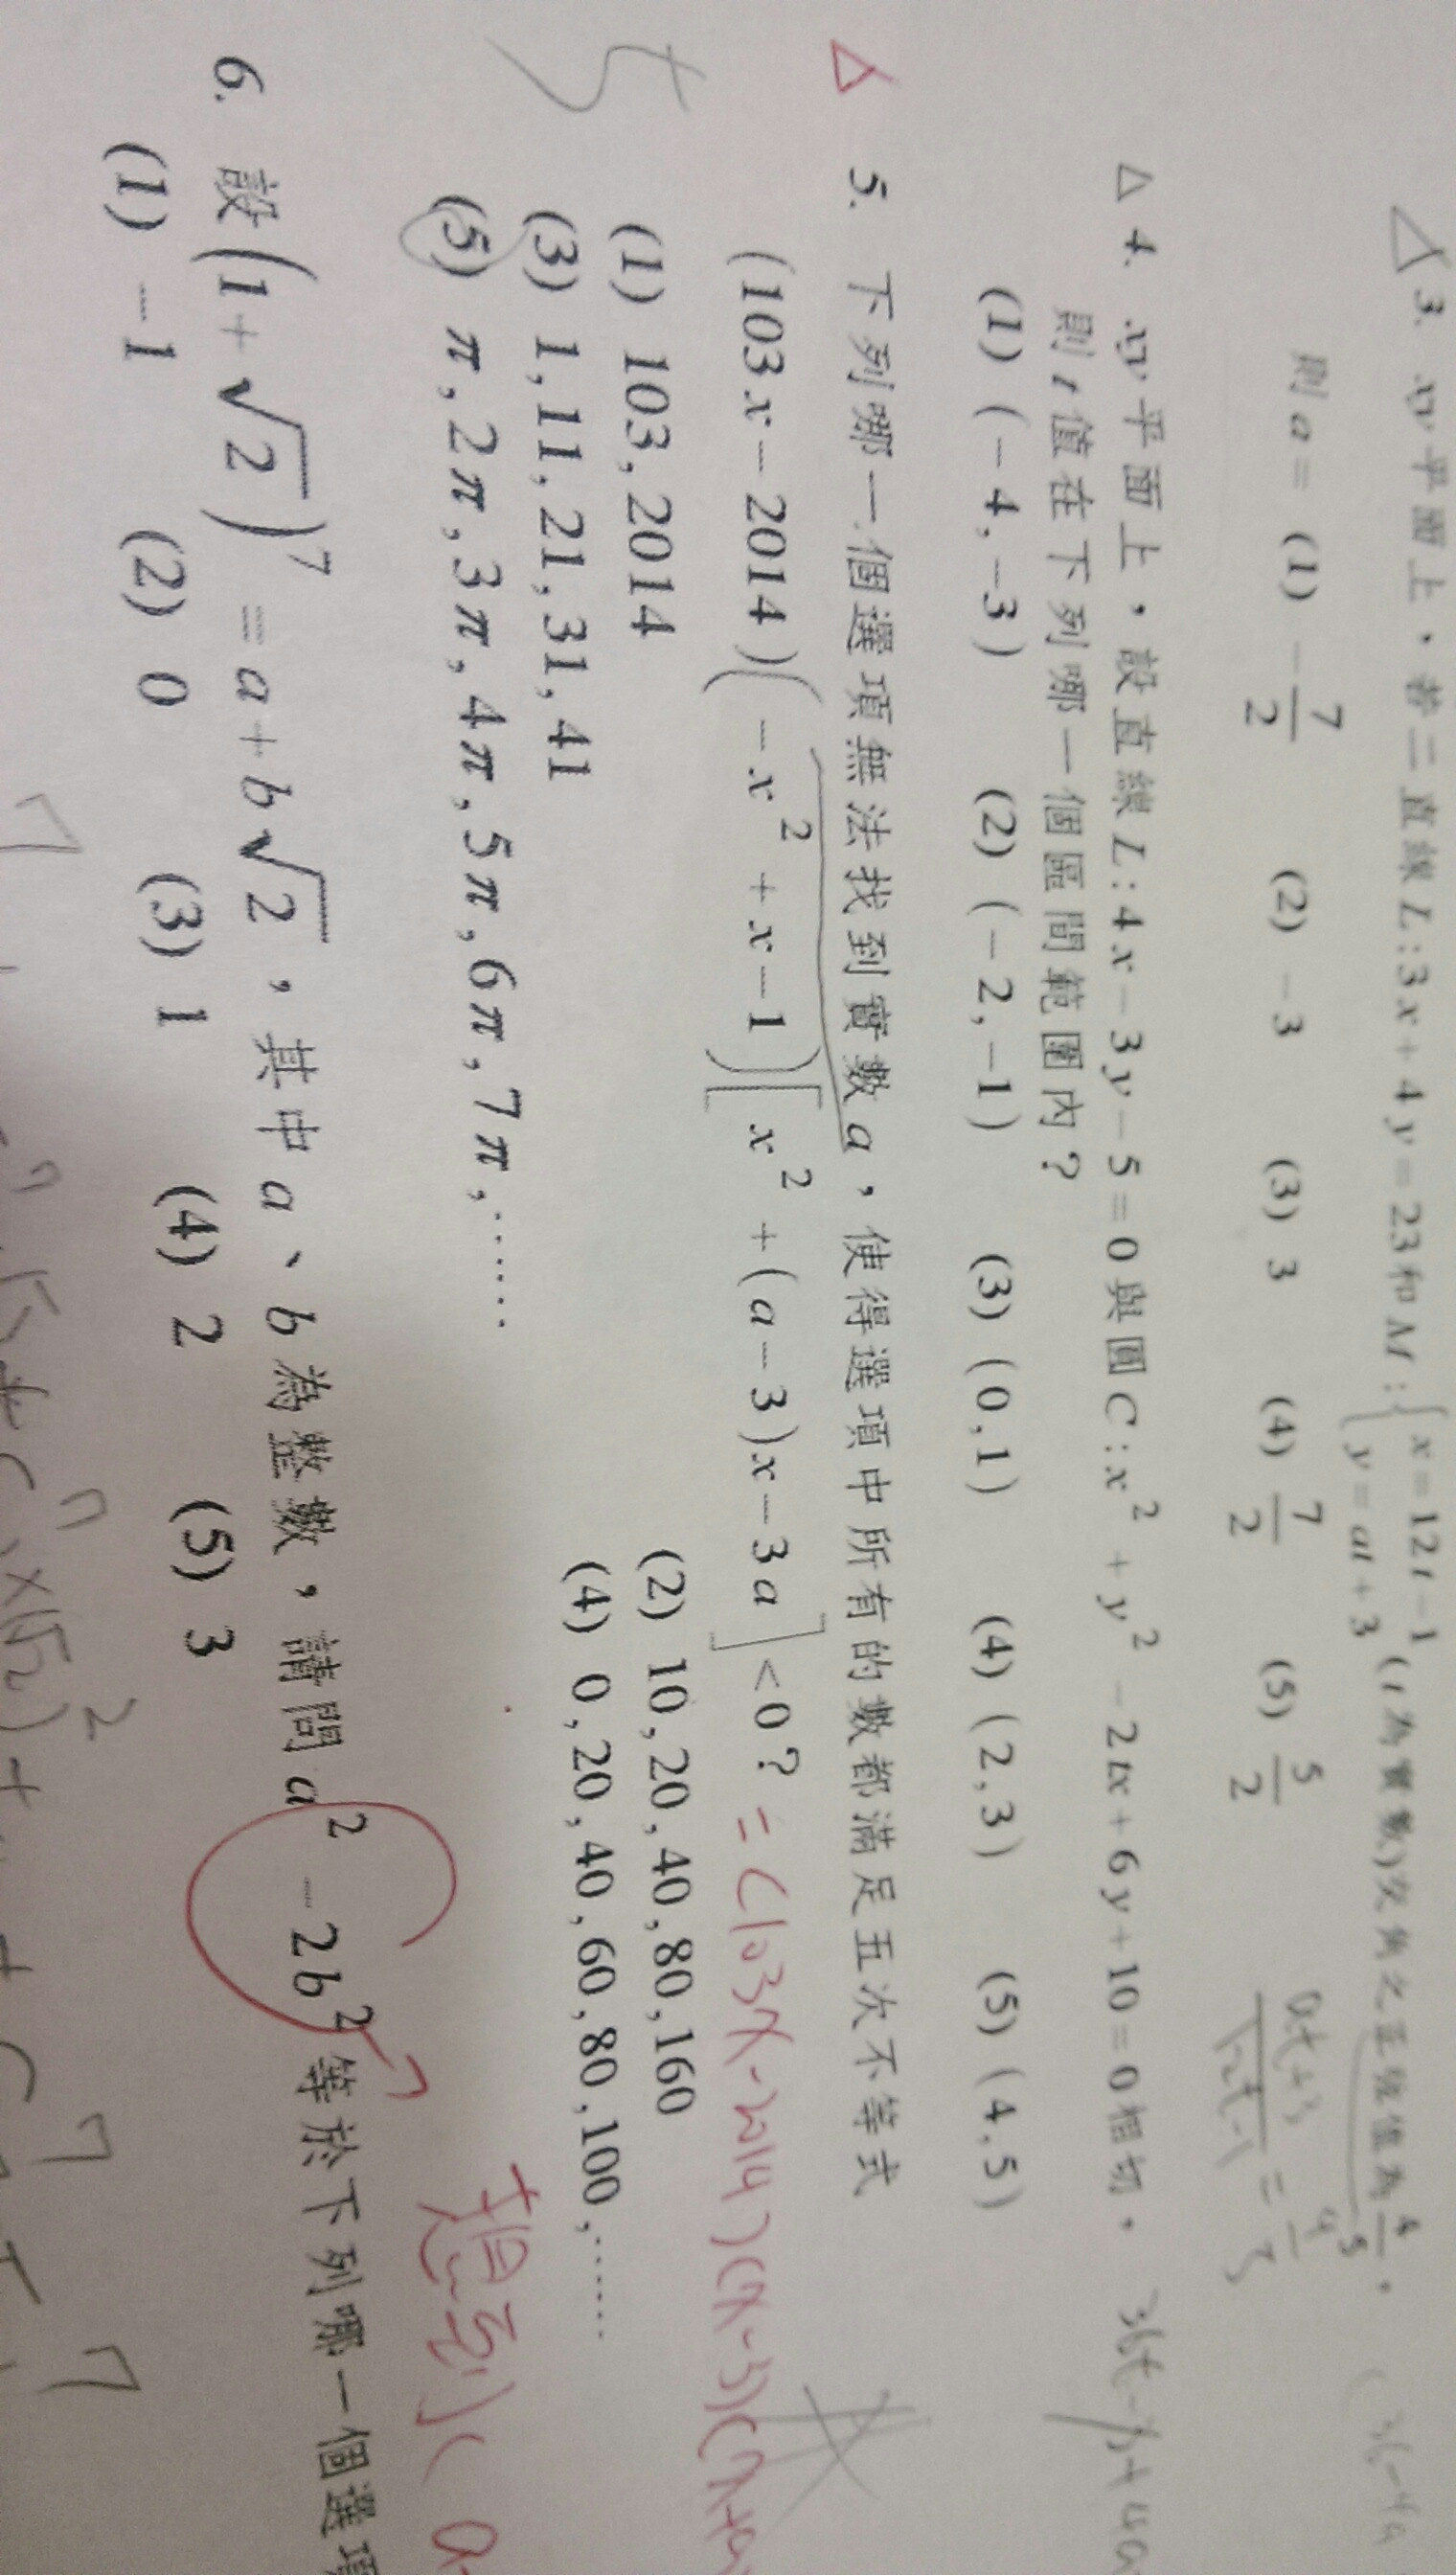 △3. xy平面上，若二直線L:3x+4y=23和M:{x=12t-1 y=at+3 (t為實數)交角之正弦值為4/5，
則a= (1) -7/2 (2) -3 (3) 3 (4) 7/2 (5) 5/2
at+3/12t-1 = 4/3
△4. xy平面上，設直線L:4x-3y-5=0與圓C:x²+y²-2tx+6y+10=0相切，
則t值在下列哪一個區間範圍內？
(1) (-4,-3) (2) (-2,-1) (3) (0,1) (4) (2,3) (5) (4,5)
△ 5. 下列哪一個選項無法找到實數a，使得選項中所有的數都滿足五次不等式
(103x-2014)(-x²+x-1)[x²+(a-3)x-3a]<0? =(103x-2014)(x-3)(x+a)
(1) 103,2014 (2) 10,20,40,80,160
(3) 1,11,21,31,41 (4) 0,20,40,60,80,100,……
(5) π,2π,3π,4π,5π,6π,7π,……
想到(a-
6. 設(1+√2)⁷=a+b√2，其中a、b為整數，請問a²-2b²等於下列哪一個選項
(1) -1 (2) 0 (3) 1 (4) 2 (5) 3